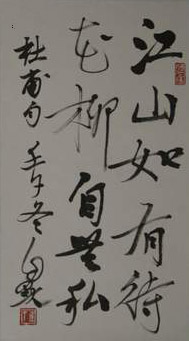 江山如有待
花柳自無私
杜甫句 壬午冬